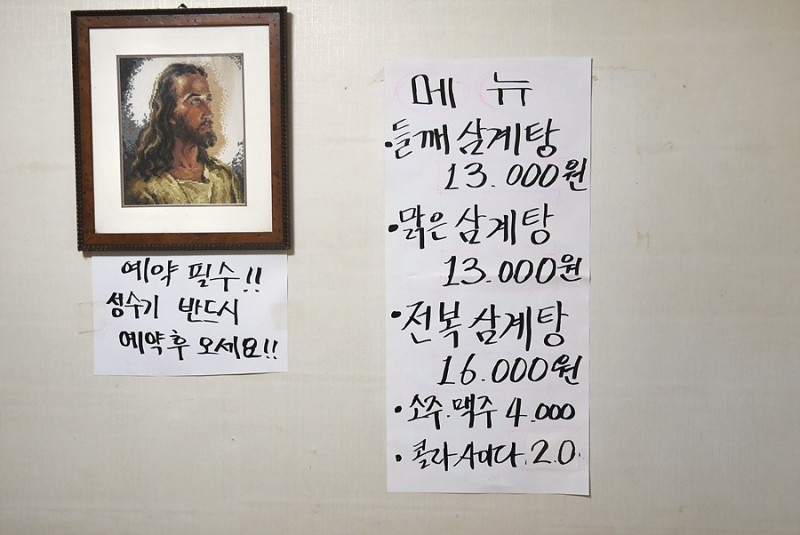 예약 필수!!
성수기 반드시
예약후 오세요!!
메뉴
·들깨 삼계탕
13.000원
·맑은 삼계탕
13.000원
·전복 삼계탕
16.000원
·소주.맥주 4.000
·콜라 사이다 2.0